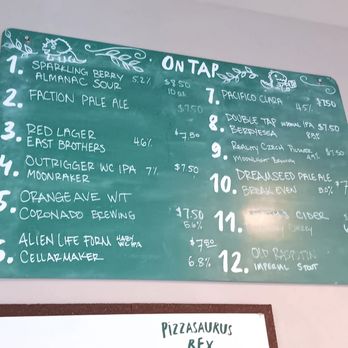 ON TAP
1. SPARKLING BERRY
ALMANAC SOUR 5.2% $8.50
10oz
2. FACTION PALE ALE $7.50
3. RED LAGER
EAST BROTHERS 4.6% $7.50
4. OUTRIGGER WC IPA 7% $7.50
MOONRAKER
5 ORANGE AVE WIT
CORONADO BREWING $7.50
5.6%
6 ALIEN LIFE FORM HAZY
WC IPA
CELLARMAKER 6.8%
7. PACIFICO CLARA 4.5% $7.50
8. DOUBLE TAP IPA $7.50
BERRYESSA
9. REALITY CZECH PILSNER
MOONLIGHT BREWING
10. DREAMSEED PALE ALE
BREAK EVEN
11. CIDER
12. OLD RASPUTIN
IMPERIAL STOUT
PIZZASAURUS
REX